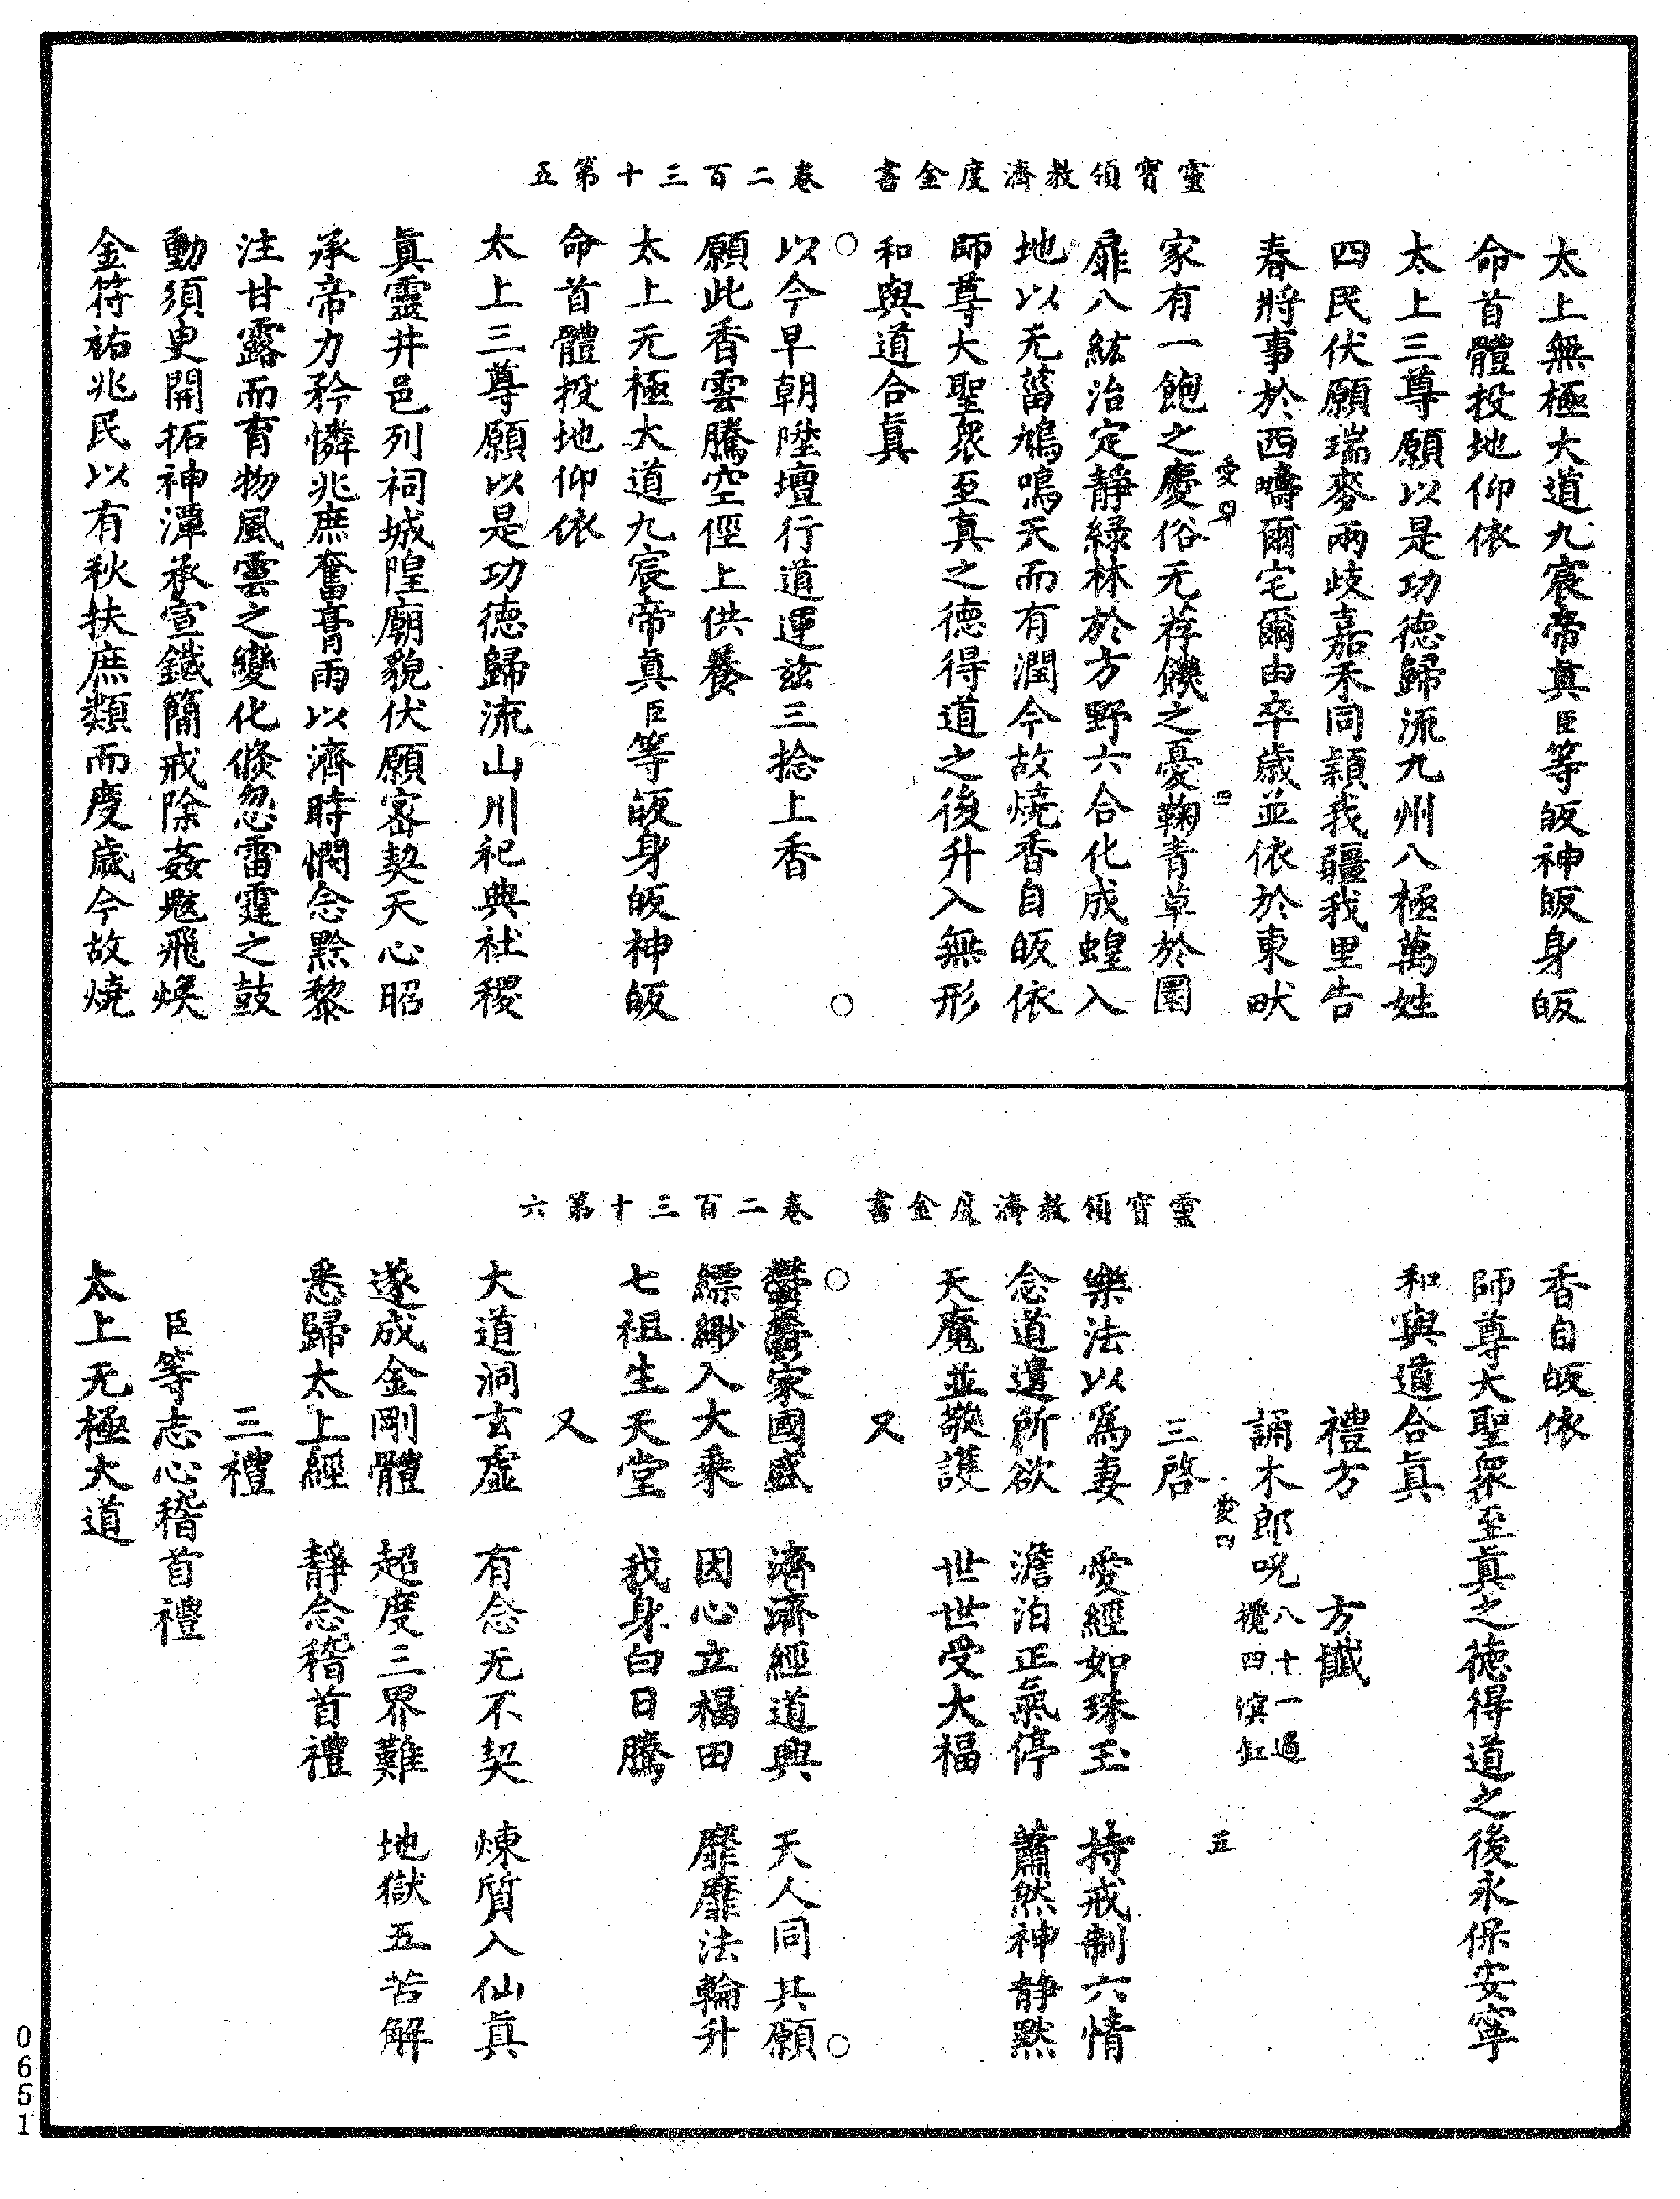 靈寶領教濟度金書　卷二百三十第五
太上無極大道九宸帝眞臣等皈神皈身皈
命首體投地仰依
太上三尊願以是功德歸流九州八極萬姓
四民伏願瑞麥兩歧嘉禾同穎我疆我里告
春將事於西疇爾宅爾由卒歲並依於東畎
家有一飽之慶俗无荐饑之憂鞠青草於圜
扉八紘治定靜綠林於方野六合化成蝗入
地以无菑鳩鳴天而有潤今故燒香自皈依
師尊大聖衆至真之德得道之後升入無形
和與道合眞
以今早朝陞壇行道運兹三捻上香
願此香雲騰空徑上供養
太上无極大道九宸帝真臣等皈身皈神皈
命首體投地仰依
太上三尊願以是功德歸流山川祀典社稷
眞靈井邑列祠城隍廟貌伏願密契天心昭
承帝力矜憐兆庶奮膏雨以濟時憫念黔黎
注甘露而育物風雲之變化倏忽雷霆之鼓
動須臾開拓神潭承宣鐵簡戒除姦慝飛煥
金符祐兆民以有秋扶庶類而度歲今故燒
靈寶領教濟度金書　卷二百三十第六
香自皈依
師尊大聖衆至真之德得道之後永保安寧
和與道合眞
禮方　方懺
誦木郎呪八十一過
攪四溟缸
三啓
樂法以爲妻　愛經如珠玉　持戒制六情
念道遣所欲　澹泊正氣停　蕭然神靜默
天魔並敬護　世世受大福
又
鬱鬱家國盛　濟濟經道興　天人同其願
縹緲入大乘　因心立福田　靡靡法輪升
七祖生天堂　我身白日騰
又
大道洞玄虛　有念无不契　煉質入仙眞
遂成金剛體　超度三界難　地獄五苦解
悉歸太上經　靜念稽首禮
三禮
臣等志心稽首禮
太上无極大道
0651